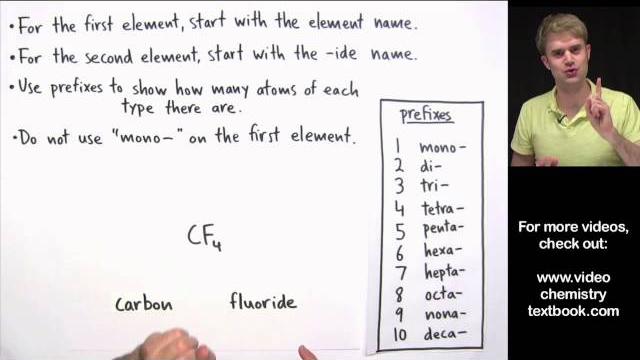 • For the first element, start with the element name.
• For the second element, start with the -ide name.
• Use prefixes to show how many atoms of each
type there are.
• Do not use "mono-" on the first element.
prefixes
1 mono-
2 di-
3 tri-
4 tetra-
5 penta-
6 hexa-
7 hepta-
8 octa-
9 nona-
10 deca-
CF₄
carbon fluoride
For more videos,
check out:
www.video
chemistry
textbook.com